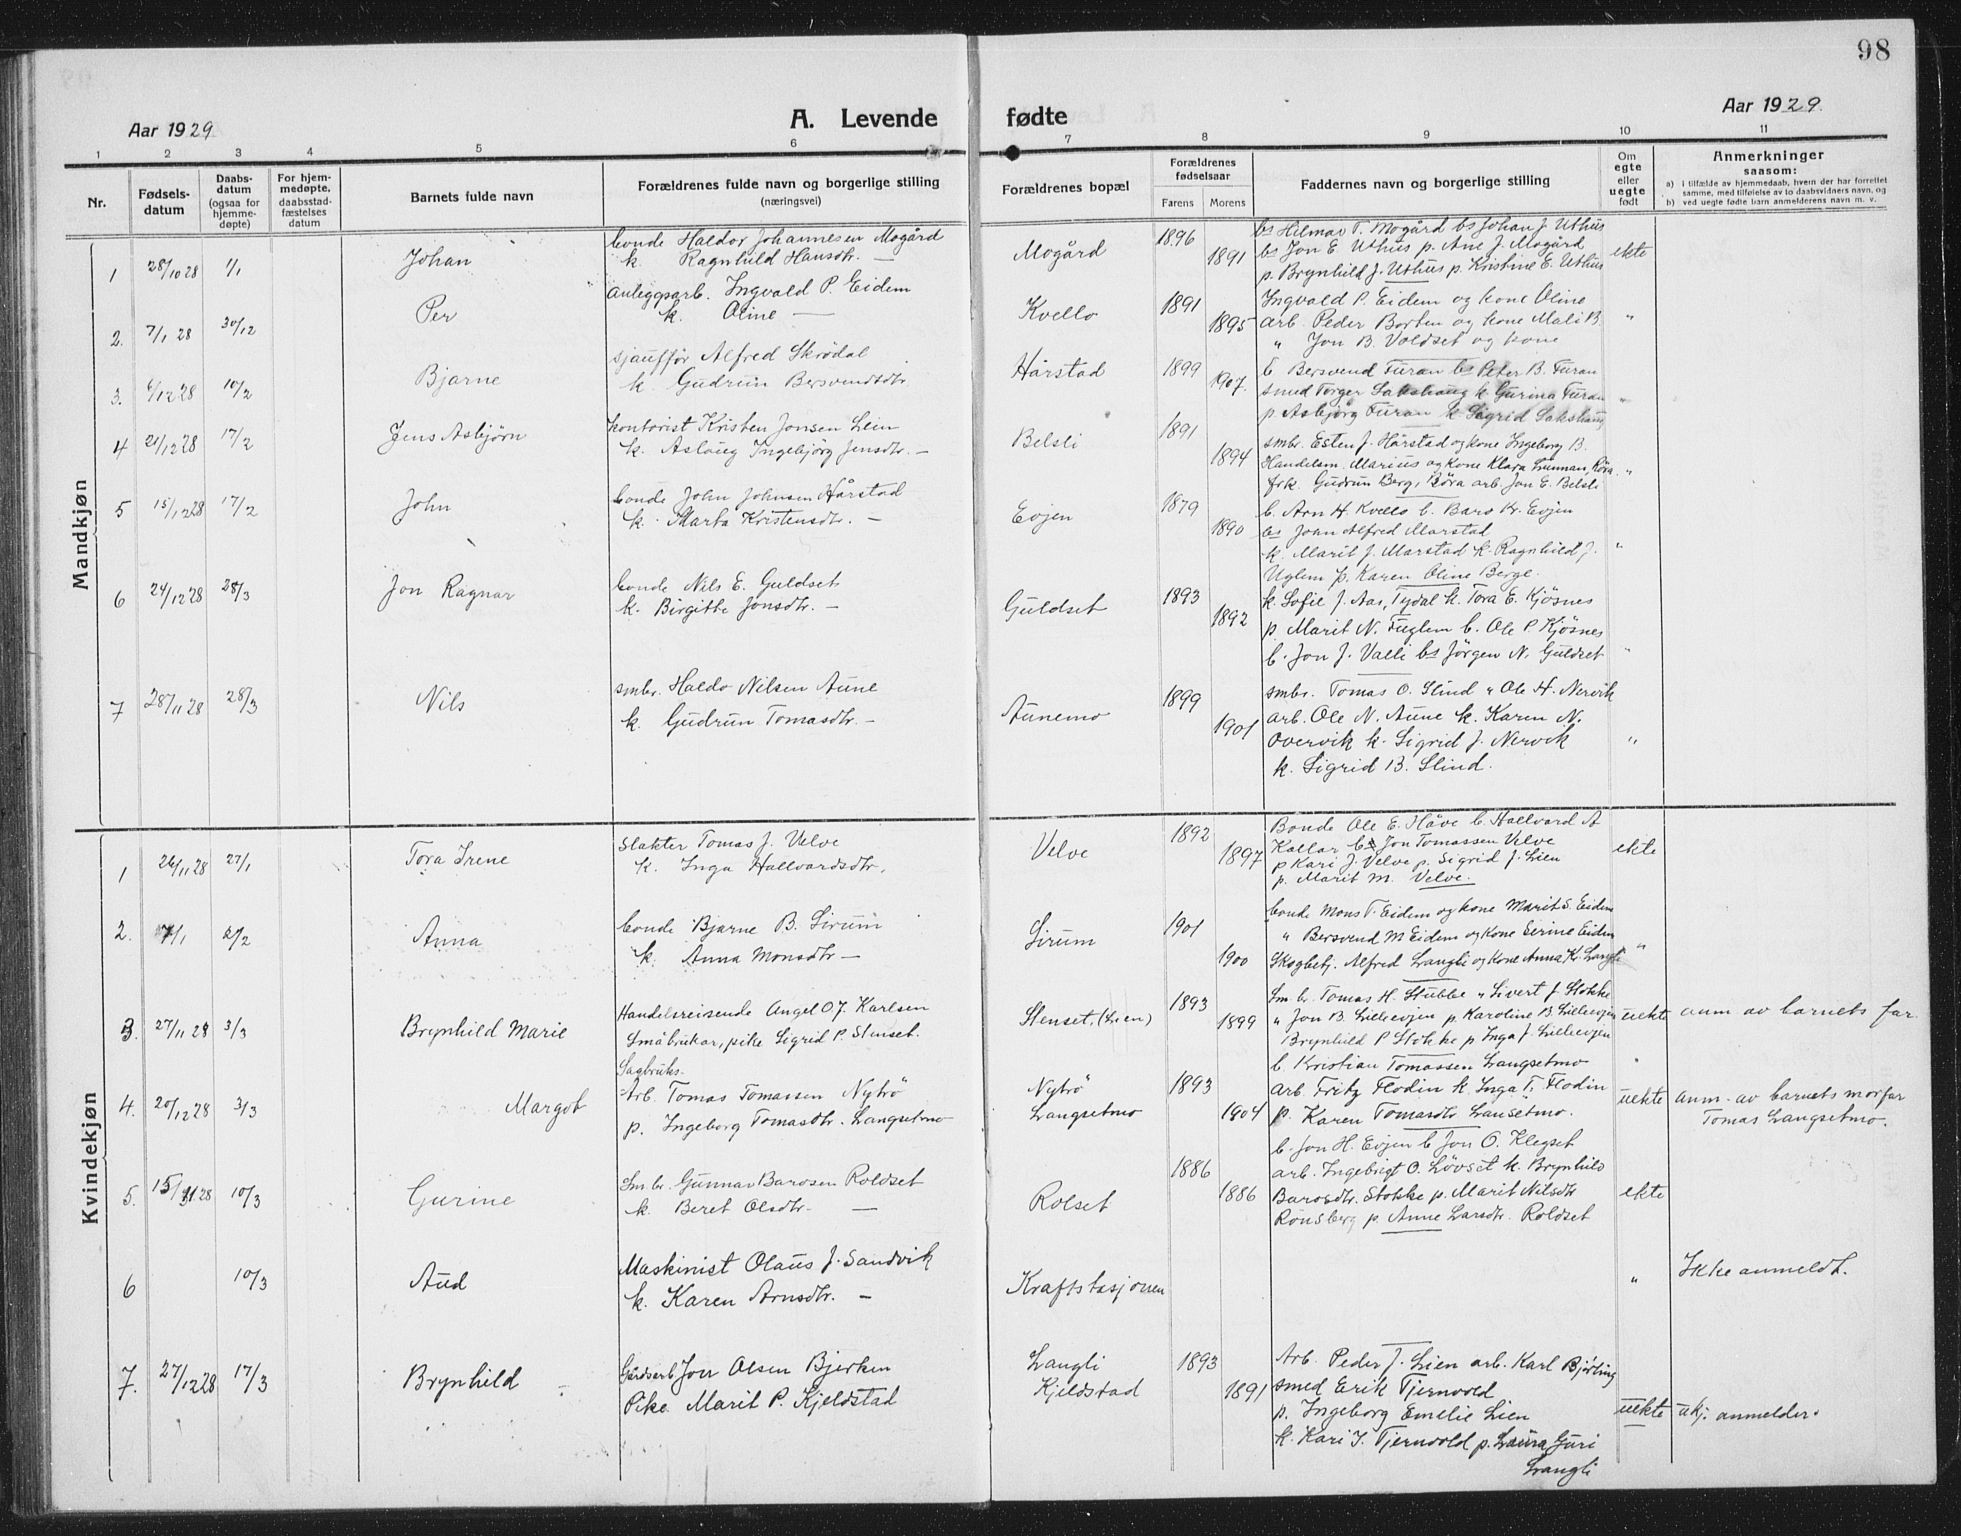 98
Aar 1929
A. Levende
fødte
Aar 1929.
1 2 3 4 5 6 7 8 9 10 11
Nr.
Fødsels-
datum
Daabs-
datum
(ogsaa for
hjemme-
døpte)
For hjem-
medøpte,
daabsstad-
fæstelses
datum
Barnets fulde navn
Forældrenes fulde navn og borgerlige stilling
(næringsvei)
Forældrenes bopæl
Forældrenes
fødselsaar
Farens
Morens
Faddernes navn og borgerlige stilling
Om
egte
eller
uegte
født
Anmerkninger
saasom:
a) i tilfælde av hjemmedaab, hvem der har forrettet
samme, med tilføielse av to daabsvidners navn, og
b) ved uegte fødte barn anmelderens navn m. v.
Mandkjøn
1 28/10 28 1/1 Johan
bonde Haldor Johannesen Mogård
k. Ragnhild Hansdtr. —
Mogård 1896 1891
bs Hilmar T. Mogård bs Johan J. Uthus
bs Jon E. Uthus p. Ane J. Mogård
p. Brynhild J. Uthus p. Kristine E. Uthus
ekte
2. 7/1 28 30/12 Per
anleggsarb. Ingvald P. Eidem
k. Oline —
Kvello 1891 1895
Ingvald P. Eidem og kone Oline
arb. Peder Borten og kone Mali B.
" Jon B. Voldset og kone
"
3. 6/12 28 10/2 Bjarne
sjauffør Alfred Skrødal
k. Gudrun Bersvendsdtr.
Hårstad 1899 1907.
b. Bersvend Furan bs Peter B. Furan
smed Torger Sakshaug k. Gurina Furan
p. Asbjørg Furan k Sigrid Sakshaug
"
4 21/12 28 17/2 Jens Asbjørn
kontorist Kristen Jonsen Lein
k. Aslaug Ingebjørg Jensdtr. —
Belsli 1891 1894
smbr. Esten J. Hårstad og kone Ingeborg B.
Handelsm. Marius og kone Klara Lunnan, Røra
frk. Gudrun Berg, Røra arb. Jon E. Belsli
"
5 15/12 28 17/2 John
bonde John Johnsen Hårstad
k. Marta Kristensdtr. —
Evjen 1879 1890
b. Arn H. Kvello b. Baro Kr. Evjen
bs John Alfred Marstad
k. Marit J. Marstad k. Ragnhild J.
Uglem p. Karen Oline Berge.
"
6 24/12 28 28/3 Jon Ragnar
bonde Nils E. Guldset
k. Birgitte Jonsdtr. —
Guldset 1893 1892
k. Sofie J. Aas, Tydal k. Tora E. Kjøsnes
p. Marit N. Fuglem b. Ole P. Kjøsnes
b. Jon J. Valli bs Jørgen N. Guldset
"
7 28/11 28 28/3 Nils
smbr. Haldo Nilsen Aune
k. Gudrun Tomasdtr. —
Aunemo 1899 1901
smbr. Tomas O. Slind " Ole H. Nervik
arb. Ole N. Aune k. Karen N.
Overvik k. Sigrid J. Nervik
k. Sigrid B. Slind.
"
Kvindekjøn
1 26/11 28 27/1 Tora Irene
Slakter Tomas J. Velve
k. Inga Hallvardsdtr.
Velve 1892 1897
Bonde Ole E. Håve b. Hallvard A
Kallar bs Jon Tomassen Velve
p Kari J. Velve p. Sigrid J. Lien
p. Marit M. Velve.
ekte
2. 7/1 2/2 Anna
bonde Bjarne B. Sirum
k. Anna Monsdtr —
Sirum 1901 1900
bonde Mons T. Eidem og kone Marit S. Eidem
" Bersvend M Eidem og kone Serine Eidem
Skogbetj. Alfred Langli og kone Anna K. Langli
"
3. 27/11 28 3/3 Brynhild Marie
Handelsreisende Angel O. J. Karlsen
Småbrukar, pike Sigrid P. Stenset.
Stenset, (Lien) 1893 1899
Sm.br. Tomas H. Stubbe " Sivert J. Stokke
" Jon B Lillevjen p Karoline B Lillevjen
Brynhild P Stokke p Inga J. Lillevjen
uekte anm. av barnets far.
4. 20/12 28 3/3 Margot
Sagbruks-
Arb. Tomas Tomassen Nytrö
p. Ingeborg Tomasdtr. Langsetmo
Nytrö
Langsetmo 1893 1904
b. Kristian Tomassen Langsetmo
arb. Fritz Flodin k Inga T. Flodin
p. Karen Tomasdtr Lansetmo.
uekte anm. av barnets morfar
Tomas Langsetmo.
5. 15/11 28 10/3 Gurine
Sm.br. Gunnar Barosen Roldset
k. Beret Olsdtr. —
Rolset 1886 1886
b. Jon H. Evjen b Jon O. Klegset
arb. Ingebrigt O. Lövset k. Brynhild
Barosdtr. Stokke p. Marit Nilsdtr
Rønsberg p. Anne Larsdtr. Roldset
ekte
6 10/3 Aud
Maskinist Olaus J. Sandvik
k. Karen Arnsdtr. —
Kraftstasjonen
" Ikke anmeldt.
7. 27/12 28 17/3 Brynhild
Gårdsarb Jon Olsen Bjerken
Pike Marit P. Kjeldstad
Langli
Kjeldstad 1893 1891
Arb. Peder J. Lien arb. Karl Bjørling
smed Erik Tjernvold
p. Ingeborg Emelie Lien
k. Kari I. Tjernvold p. Laura Guri
Langli
uekte ukj. anmelder.